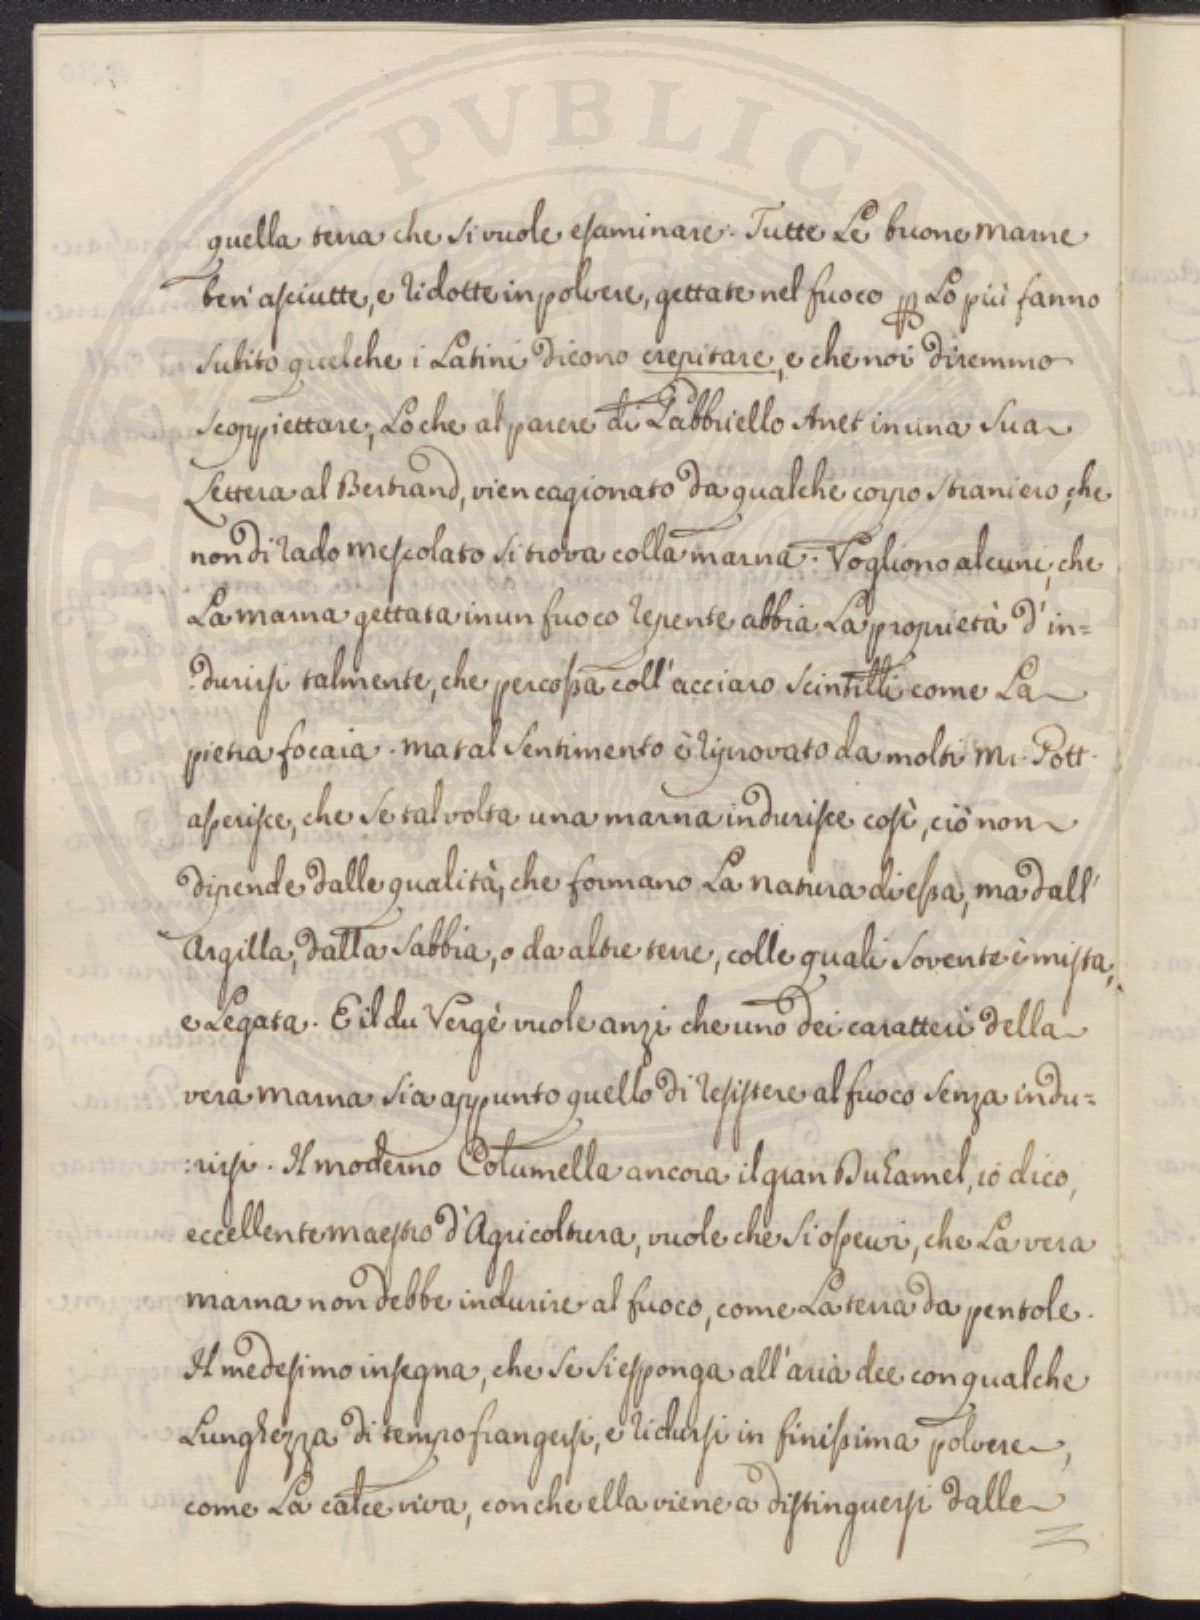 PERITAE PVBLICAE
quella terra che si vuole esaminare. Tutte le buone marne
ben asciutte, e ridotte in polvere, gettate nel fuoco p Lo più fanno
subito quel che i Latini dicono crepitare, e che noi diremmo
scoppiettare, Lo che al parere di Gabbriello Anet in una sua
Lettera al Bertrand, vien cagionato da qualche corpo straniero, che
non di rado mescolato si trova colla marna. Vogliono alcuni, che
La marna gettata in un fuoco repente abbia La proprietà d'in=
:durirsi talmente, che percossa coll'acciaro scintilli come La
pietra focaia. ma tal sentimento è riprovato da molti Mr. Pott.
asserisce, che se tal volta una marna indurisce così, ciò non
dipende dalle qualità, che formano La natura di essa, ma dall'
Argilla, dalla sabbia, o da altre terre, colle quali sovente è mista,
e Legata. E il du Vergè vuole anzi che uno dei caratteri della
vera marna sia appunto quello di resistere al fuoco senza indu=
:rirsi. Il moderno Columella ancora il gran Duhamel, io dico,
eccellente maestro d'Agricoltura, vuole che si osservi, che La vera
marna non debbe indurire al fuoco, come La terra da pentole.
Il medesimo insegna, che se si esponga all'aria dee con qualche
Lunghezza di tempo frangersi, e ridursi in finissima polvere,
come La calce viva, con che ella viene a distinguersi dalle